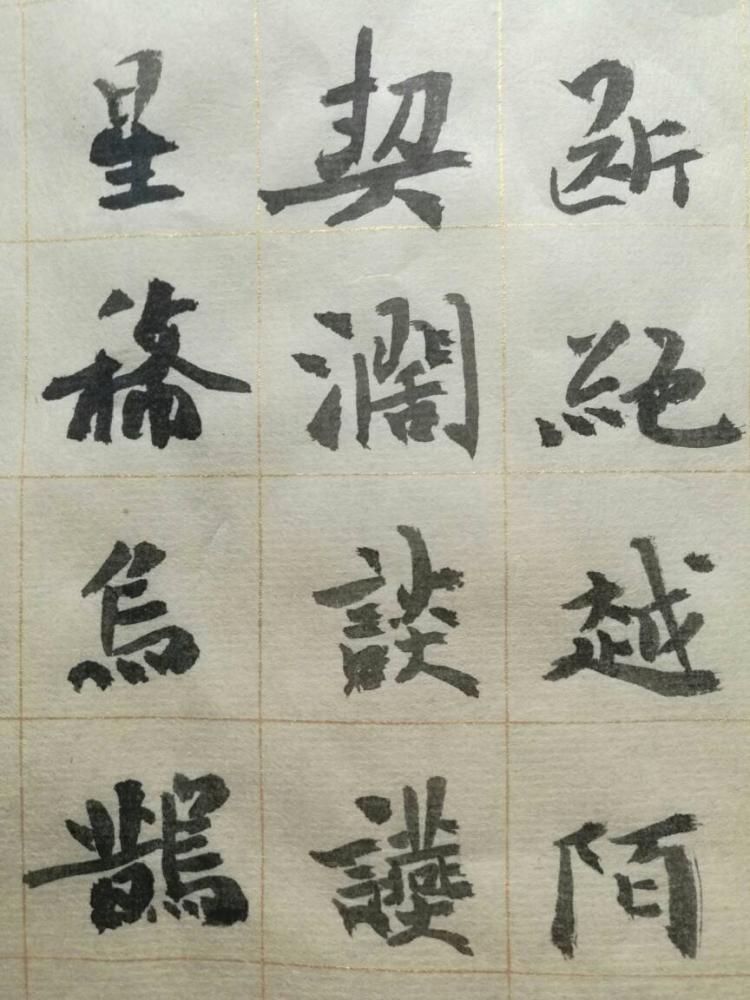 断絶越陌
契濶談讌
星稀烏鵲